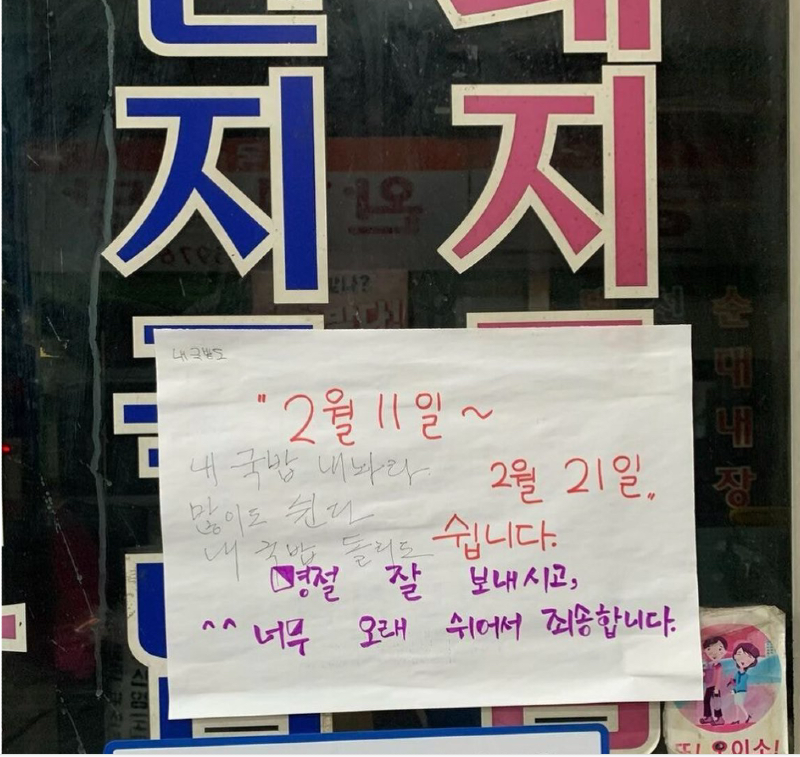 지
지
내 국밥도
"2월 11일 ~
2월 21일"
쉽니다.
내 국밥 내놔라
많이도 쉰다
내 국밥 돌리도
명절 잘 보내시고,
^^ 너무 오래 쉬어서 죄송합니다.
순대내장
또! 오이소!